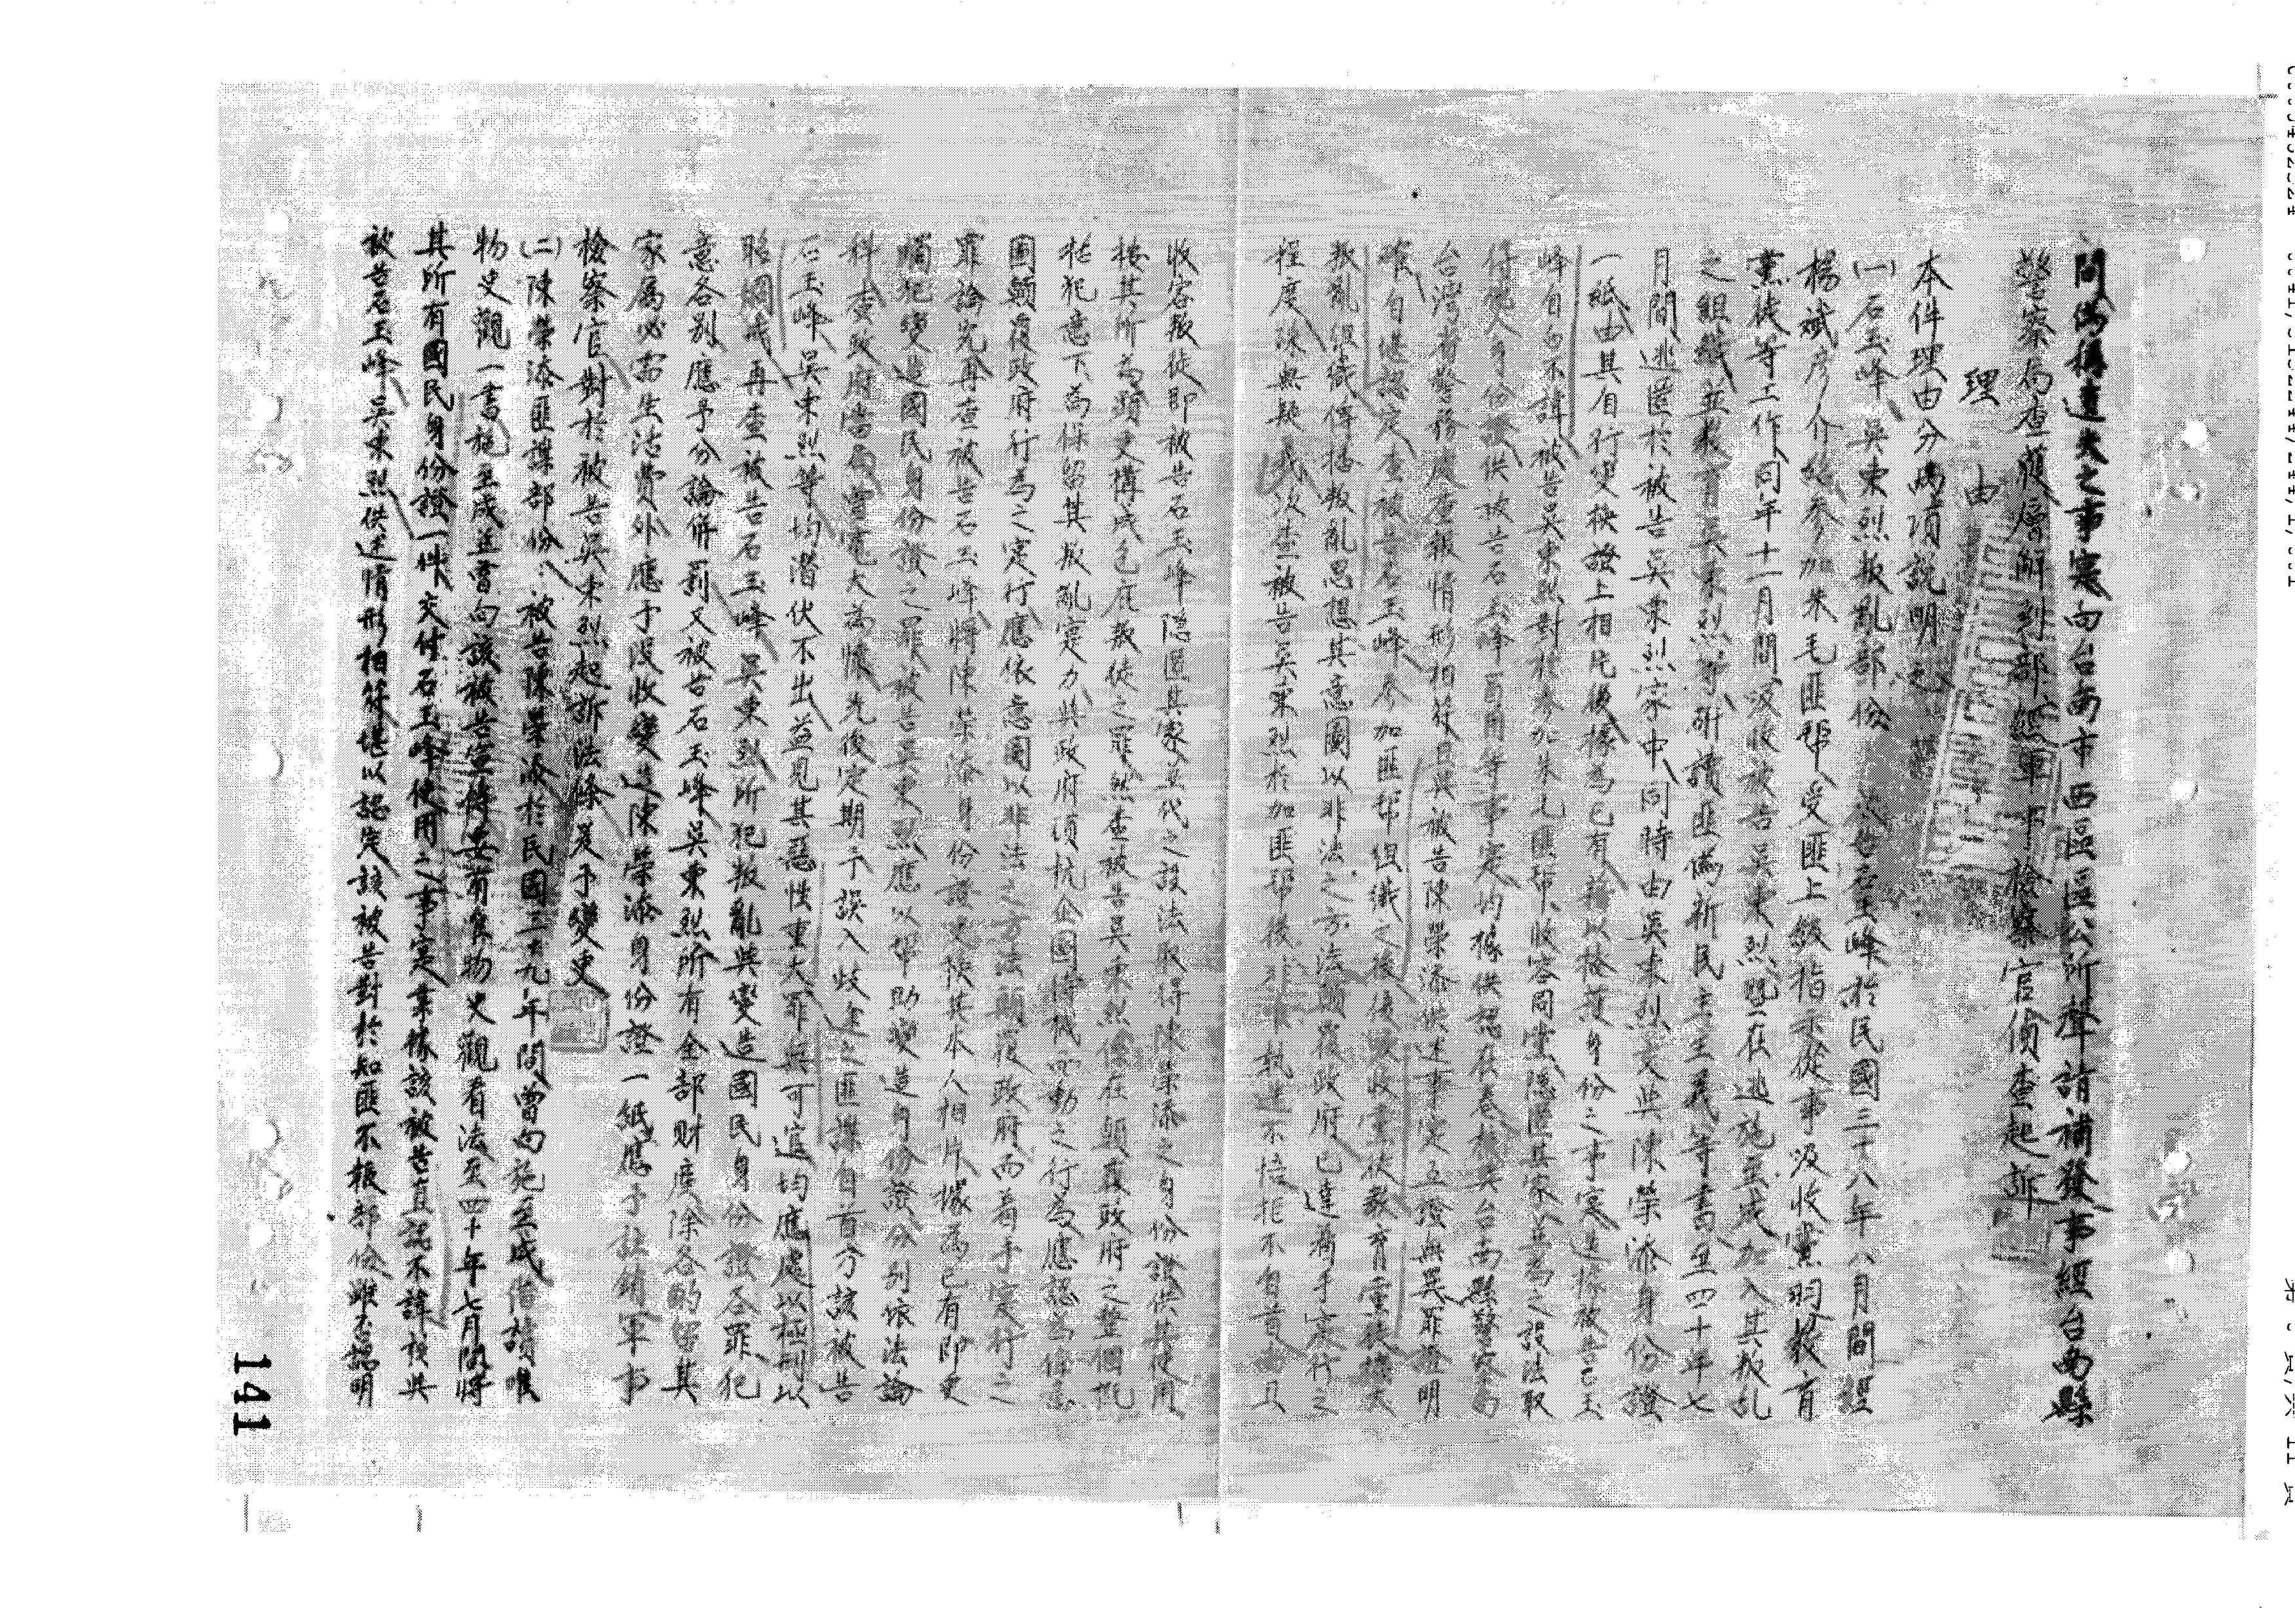 間偽稱遺失之事寔向台南市西區區公所聲請補發事經台南縣
警察局查獲層解到部經軍事檢察官偵查起訴
理由
本件理由分兩項說明之
(一)石玉峰吳東烈叛亂部份 被告石玉峰於民國三十八年八月間經
楊斌彥介紹參加朱毛匪幫受匪上級指示從事吸收黨羽教育
黨徒等工作同年十一月間吸收被告吳東烈既在逃施至成加入其叛乱
之組織並教育吳東烈等研讀匪偽新民主主義等書至四十年七
月間逃匿於被告吳東烈家中同時由吳東烈交與陳榮添身份證
一紙由其自行變換證上相片後據為己有藉以掩護身份之事寔迭據被告石玉
峰自白不諱被告吳東烈對於參加朱毛匪幫收容同黨隱匿其家並為之設法取
得他人身份證供被告石玉峰冒用等事寔均據供認在卷核與台南縣警察局
台灣省警務處查報情形相符且與被告陳榮添供述事寔互證無異罪證明
確自堪認定查被告石玉峰參加匪幫組織之後復吸收黨徒教育黨徒擴大
叛亂組織傳播叛亂思想其意圖以非法之方法顛覆政府已達著手寔行之
程度殊無疑義次查被告吳東烈於加匪幫後 執迷不悟拒不自首而且
收容叛徒即被告石玉峰隱匿其家並代之設法取得陳榮添之身份證供其使用
按其所為頭足構成包庇叛徒之罪然查被告吳東烈係在顛覆政府之整個概
括犯意下為保留其叛亂寔力與政府頑抗企圖待機而動之行為應認為係意
圖顛覆政府行為之寔行應依意圖以非法之方法顛覆政府而着手寔行之
罪論究再查被告石玉峰將陳榮添身份證更換其本人相片據為己有即更
觸犯變造國民身份證之罪被告吳東烈應以幫助變造身份證分別依法論
科查政府當局寬宏大為懷先後定期予誤入歧途之匪諜自首乃該被告
石玉峰吳東烈等均潛伏不出益見其惡性重大罪無可逭均應處以極刑以
昭炯戒再查被告石玉峰吳東烈所犯叛亂與變造國民身份證各罪犯
意各別應予分論併罰又被告石玉峰吳東烈所有全部財產除各酌留其
家屬必需生活費外應予沒收變造陳榮添身份證一紙應予註銷軍事
檢察官對於被告吳東烈起訴法條爰予變更
(二)陳榮添匪諜部份：被告陳榮添於民國三十九年間曾向施至成借讀唯
物史觀一書施至成並嘗向該被告宣傳共產唯物史觀看法至四十年七月間將
其所有國民身份證一件交付石玉峰使用之事寔業據該被告直認不諱核與
被告石玉峰吳東烈供述情形相符堪以認定該被告對於知匪不報部份雖不認明
141